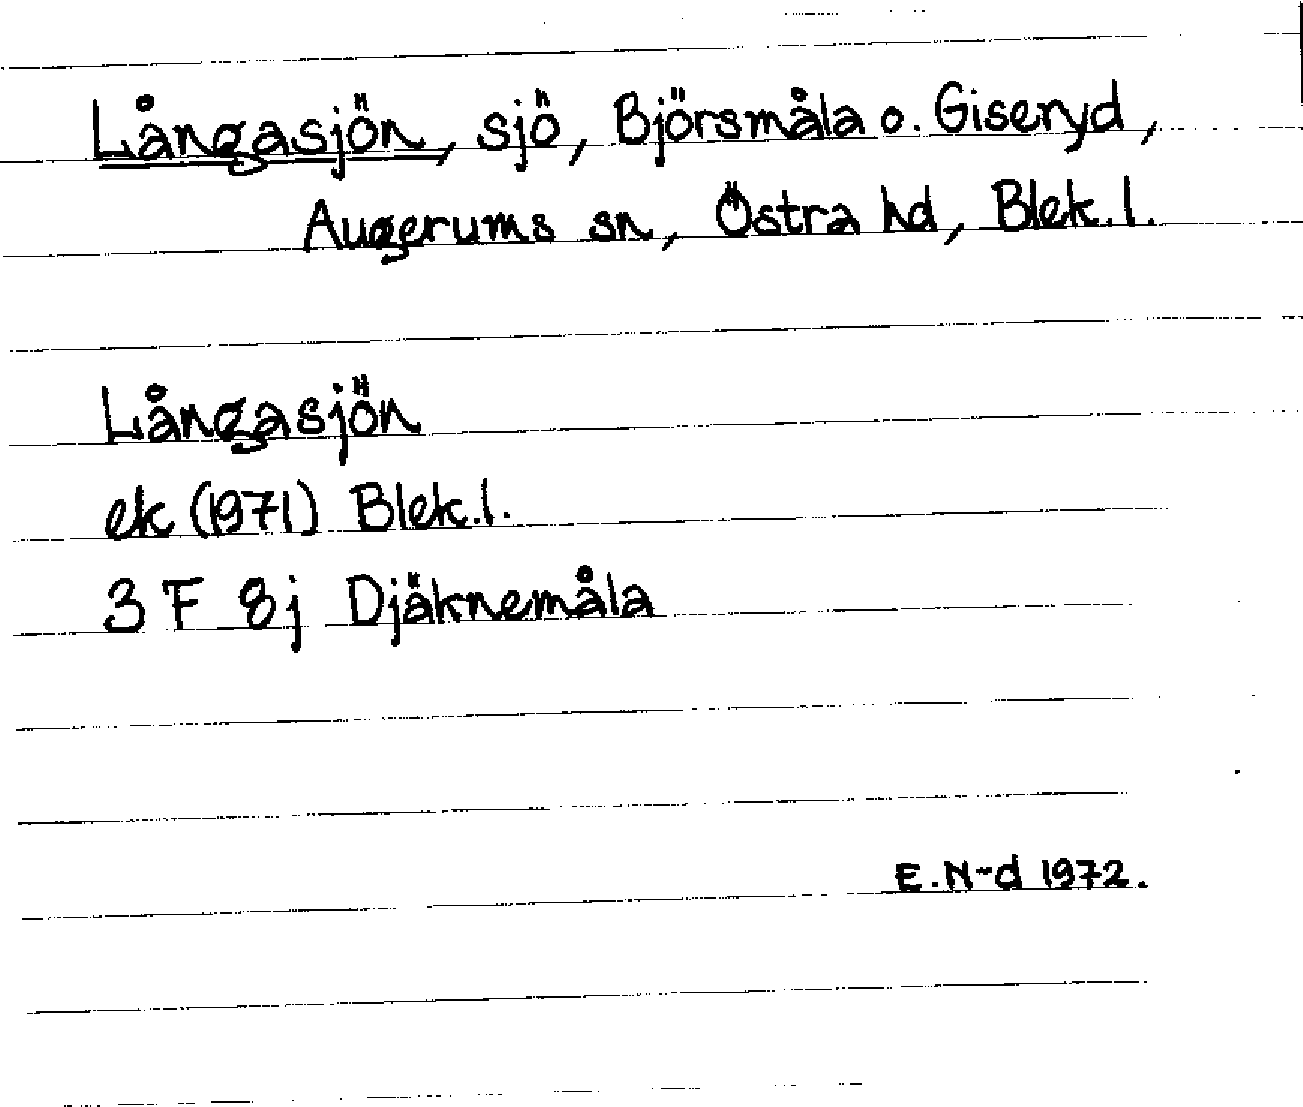 Långasjön, sjö, Björsmåla o. Giseryd,
Augerums sn, Östra hd, Blek. l.
Långasjön
ek (1971) Blek. l.
3 F 8j Djäknemåla
E. N-d 1972.